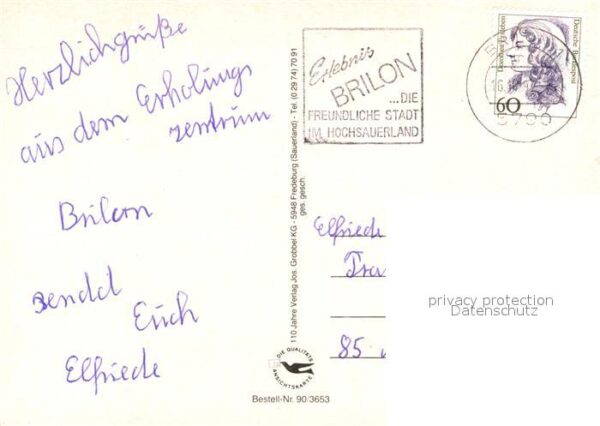 Herzlichgrüße
aus dem Erholungs
zentrum
Brilon
sendd
Euch
Elfriede
110 Jahre Verlag Jos. Grobbel KG - 5948 Fredeburg (Sauerland) - Tel. (0 29 74) 70 91
ges. gesch.
DIE QUALITÄTS
ANSICHTSKARTE
Bestell-Nr. 90/3653
Erlebnis
BRILON
...DIE
FREUNDLICHE STADT
IM HOCHSAUERLAND
Deutsche Bundespost
60
5790
Elfriede
Tra
85
privacy protection
Datenschutz